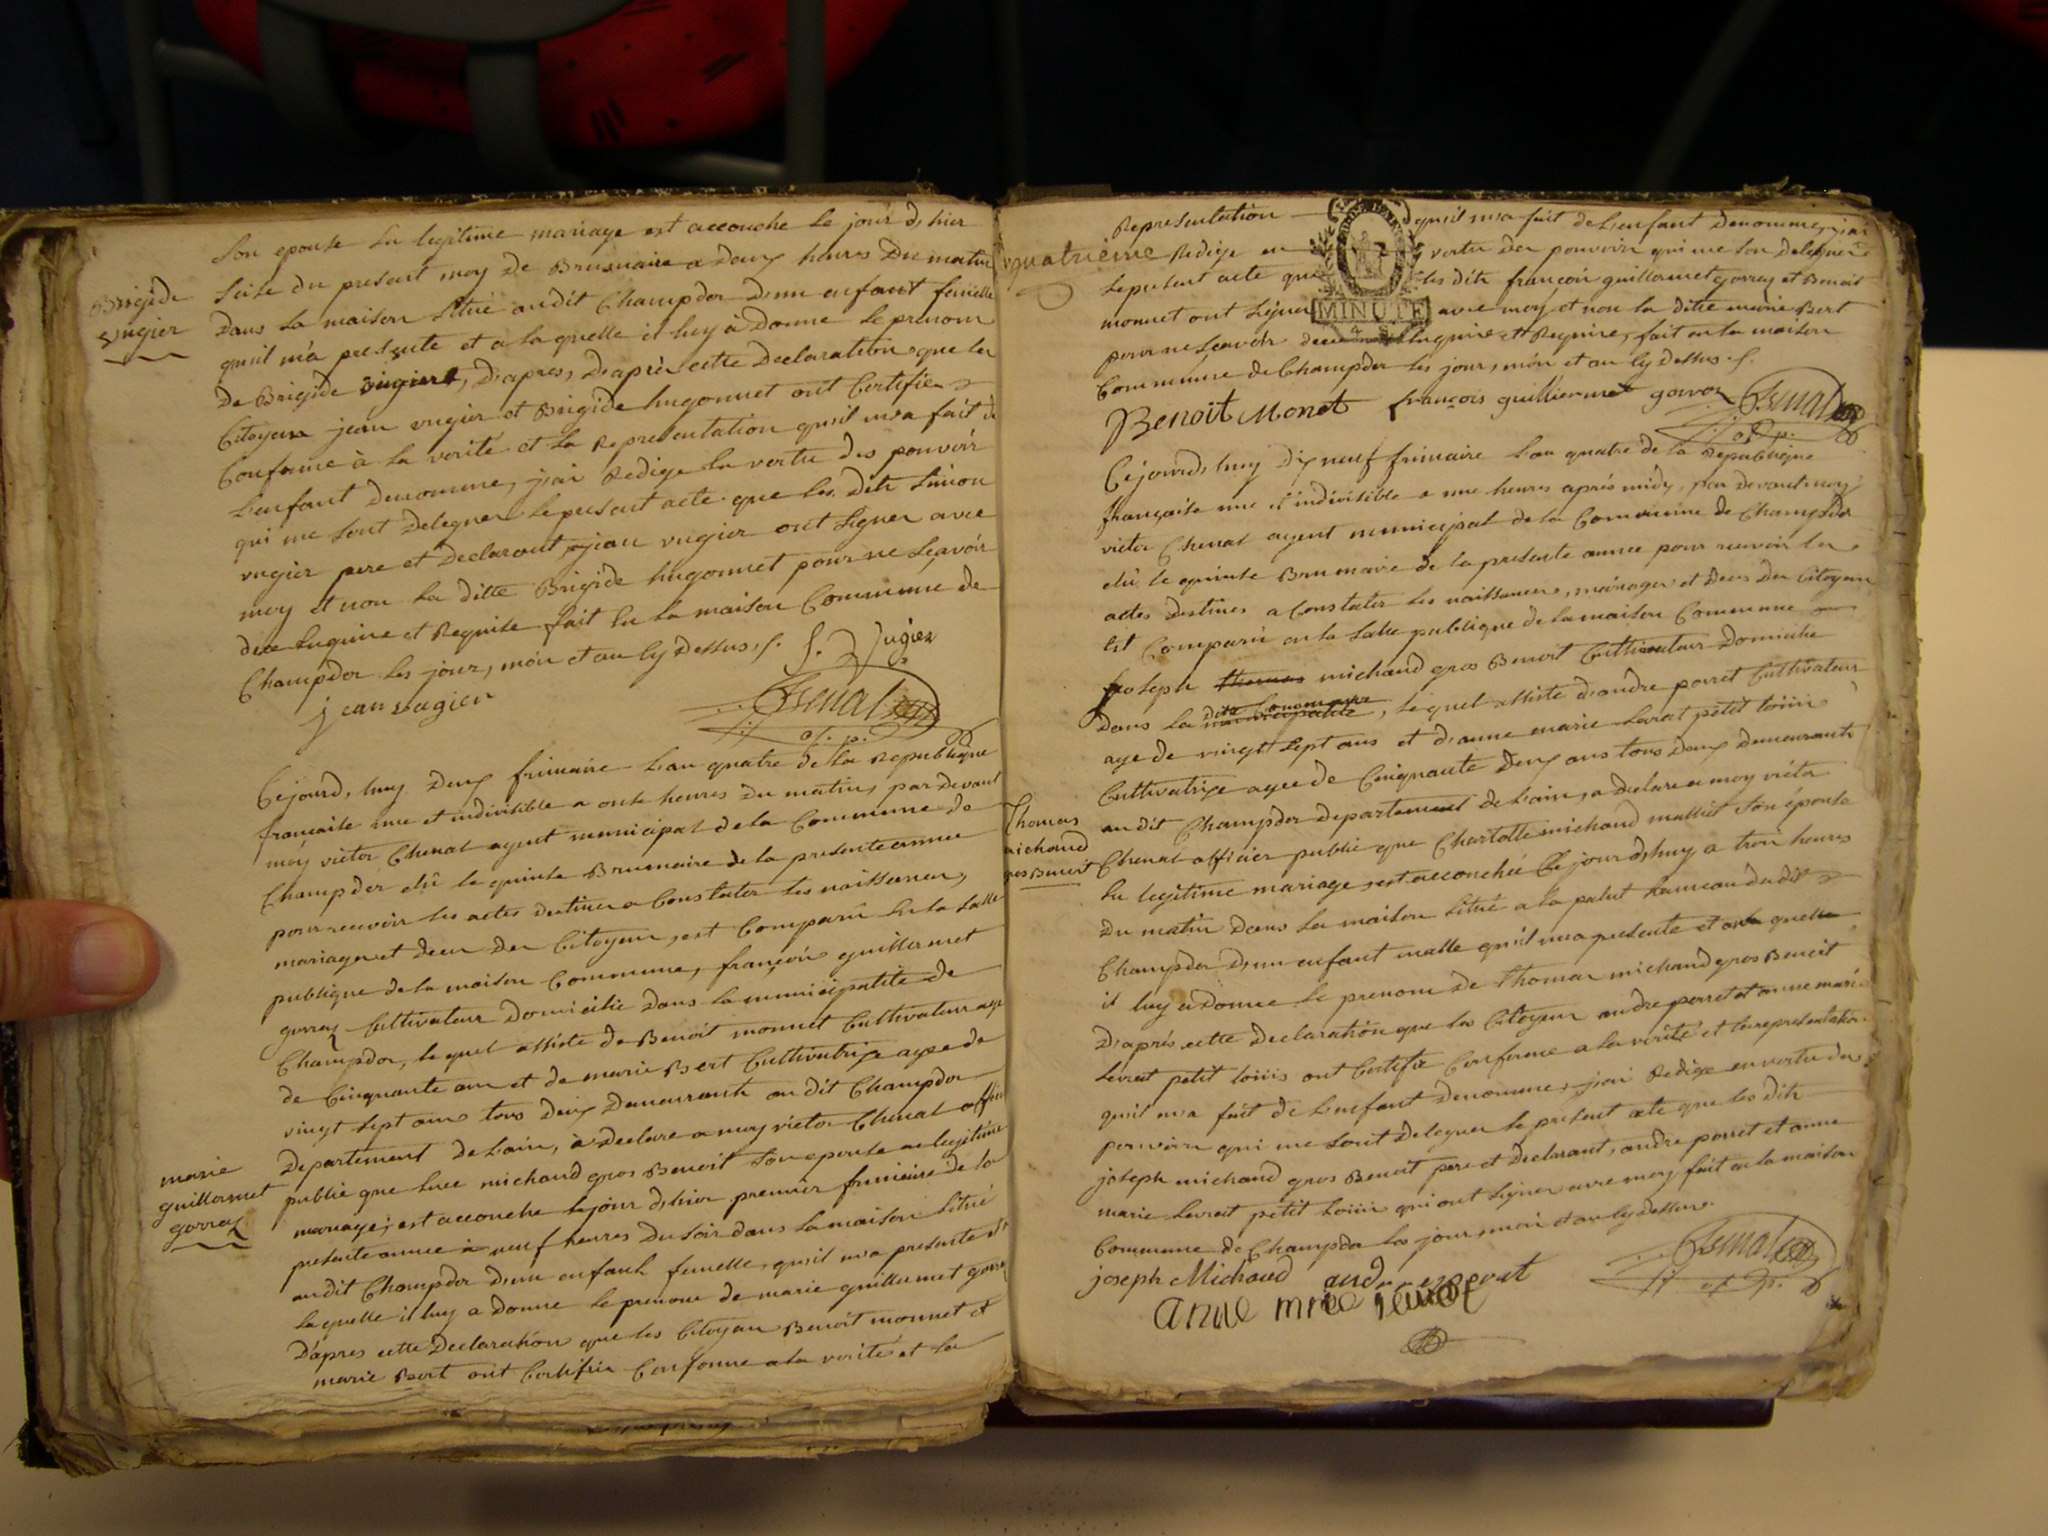 Son epouse En legitime mariage est accouche le jour d, hier
Seise du present moy De Brumaire a Deux heures Du matin
Brigide
vugier
Dans La maison Situé audit Champdor D'un enfant femelle
quil m'a presente et a la quelle il luy à Donne le prenom
De Brigide vugier, D'apres cette Declaration que les
Citoyens jean vugier et Brigide hugonnet ont Certifie
Conforme à la verité et la Representation quil m'a fait de
L'enfant Denomme, j'ai Redige En vertu des pouvoir
qui me Sont Deleguer le present acte que les dits Simon
vugier pere et Declarant jean vugier ont Signer avec
moy et non la ditte Brigide hugonnet pour ne Sçavoir
dece Enquire et Requise fait En la maison Commune de
Champdor les jour, mois et an Cy Dessus. /.
S. Vugier
jean vugier
Chenal
of. p.
Cejourd, huy Deux frimaire L'an quatre de la Republique
françaite une et indivisible a onze heures Du matin, par Devant
moy victor Chenal agent municipal de la Commune de
Champdor elû le quinte Brumaire de la presente annee
pour recevoir les actes destines a Constater les naissances,
mariages et deces Des Citoyens, est Comparû En la Salle
publique de la maison Commune, françois guillermet
gorraz Cultivateur Domicilié Dans la municipalité de
Champdor, le quel assiste de Benoit monnet Cultivateur age
de Cinquante ans et de marie Bert Cultivatrixe agee de
vingt Sept ans tous Deux Demeurants au dit Champdor
Departement de L'ain, à Declare a moy victor Chenal officier
marie
guillermet
gorraz
publie que Luce michaud gros Benoit Son epouse en legitime
mariage, est accouche lejour d, hier premier frimaire de la
presente annee à neuf heures Du Soir dans la maison Situé
au dit Champdor D'un enfant femelle, quil m'a presente et
la quelle il luy a Donne le prenom de marie guillermet gorraz
D'apres cette Declaration que les Citoyens Benoit monnet et
marie Bert ont Certifié Conforme a la verité et la
Representation quil m'a fait de L'enfant Denomme, j'ai
quatrieme
Redige en vertu des pouvoir qui me Son Deleguer
le present acte que les dits françois guillermet gorraz et Benoit
monnet ont Signer avec moy et non la ditte marie Bert
MINUTE
pour ne Sçavoir Enquire et Requise, fait en la maison
Commune de Champdor les jour, mois et an Cy dessus. /.
Benoit Monet françois guilliermet gorraz Chenal
of. p.
Cejourd, huy Dix neuf frimaire L'an quatre de la Republique
françaite une et indivisible a une heures après midy, par Devant moy
victor Chenal agent municipal de la Commune de Champdor
elû le quinte Brumaire de la presente annee pour recevoir les
actes destines a Constater les naissances, mariages et Deces Des Citoyens
Est Comparû en la Salle publique de la maison Commune
joseph thomas michaud gros Benoit Cultivateur Domicilie
Dans la dite Commune municipalité, le quel assiste d'andre perret Cultivateur
age de vingt Sept ans et d'anne marie Levrat petit
Cultivatrixe agee de Cinquante Deux ans tous Deux Demeurants
au dit Champdor Departement de L'ain, a declare a moy victor
Thomas
michaud
gros Benoit
Chenal officier public que Charlotte michaud Son épouse
En legitime mariage est accouchée Ce jour d'huy a trois heures
Du matin Dans la maison Situé a la palut hameau du dit
Champdor D'un enfant malle quil m'a presente et a la quelle
il luy a Donne le prenom de Thomas michaud gros Benoit
D'après cette Declaration que les Citoyens andre perret et anne marie
Levrat petit ont Certifié Conforme a la vérité et la representation
quil m'a fait de L'enfant Denomme, j'ai Redige en vertu des
pouvoirs qui me Sont Deleguer le present acte que les dits
joseph michaud gros Benoit pere et Declarant, andre perret et anne
marie Levrat petit qui ont Signer avec moy, fait en la maison
Commune de Champdor les jour, mois et an Cy dessus.
joseph Michaud andre perrat Chenal
of. p.
anne mrie levrat